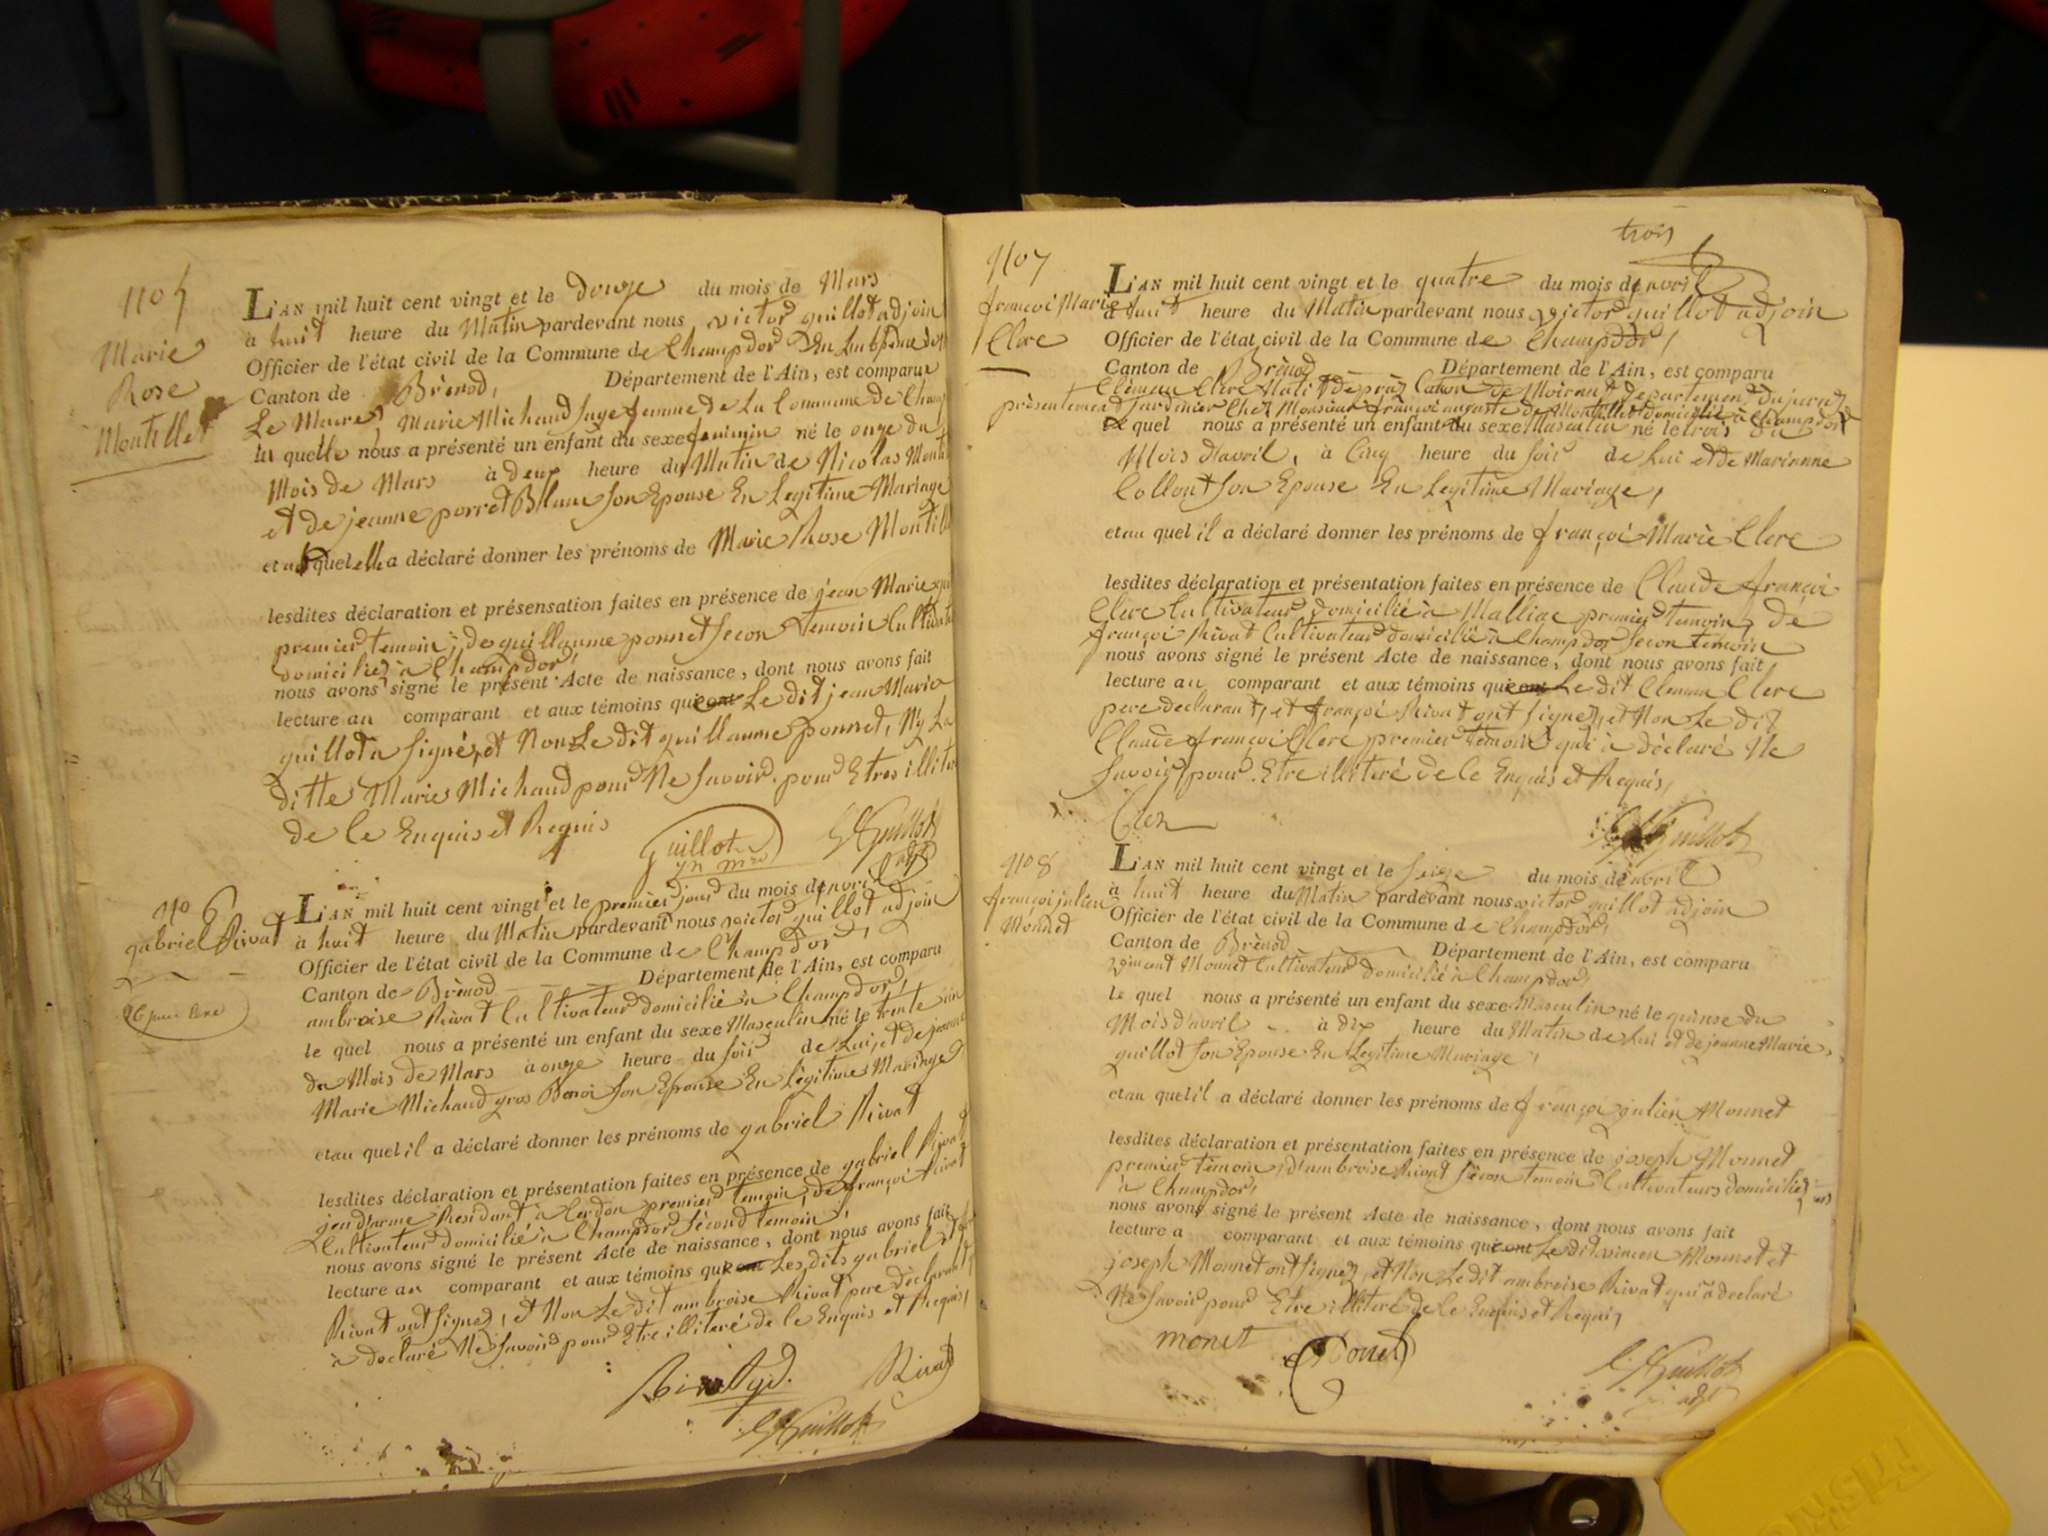 N° 5
Marie
Rose
Montillet
L'AN mil huit cent vingt et le douze du mois de Mars
à huit heure du Matin pardevant nous victor guillot adjoin
Officier de l'état civil de la Commune de Champdor
Canton de Brénod, Département de l'Ain, est comparue
Le Maire, Marie Michaud Sage femme de La Commune de Champ
la quelle nous a présenté un enfant du sexe feminin né le onze du
Mois de Mars à deux heure du Matin de Nicolas Monti
et de jeanne porret Blanc son Epouse En Legitime Mariage
et au quel elle a déclaré donner les prénoms de Marie Rose Montill
lesdites déclaration et présensation faites en présence de jean Marie gui
premier temoin, de guillaume ponnet secon temoin Cultivate
domiciliez à Champdor,
nous avons signé le présent Acte de naissance, dont nous avons fait
lecture au comparant et aux témoins qui ont Le dit jean Marie
guillot a signé, et Non Le dit guillaume ponnet, Ny La
ditte Marie Michaud pour Ne savoir pour Etres illite
de le Enquis et Requis
Guillot
Guillot
adj
N° 6
gabriel Rivat
L'AN mil huit cent vingt et le premier jour du mois d'avril
à huit heure du Matin pardevant nous victor guillot adjoin
Officier de l'état civil de la Commune de Champdor,
Canton de Brénod Département de l'Ain, est comparu
ambroise Rivat Cultivateur domicilié à Champdor,
le quel nous a présenté un enfant du sexe Masculin né le trente un
du Mois de Mars à onze heure du soir de Lui, et de jeanne
Marie Michaud gros Benoi son Epouse En Légitime Mariage
et au quel il a déclaré donner les prénoms de gabriel Rivat
lesdites déclaration et présentation faites en présence de gabriel Rivat
jendarme Residant à Cerdon premier temoin, de françoi Rivat
Cultivateur domicilié à Champdor sécond temoin,
nous avons signé le présent Acte de naissance, dont nous avons fait
lecture au comparant et aux témoins qui ont Les dits gabriel et f
Rivat ont signez, et Non Le dit ambroise Rivat pere déclarant
à déclaré Ne savoir pour Etre illiteré de le Enquis et Requis,
Rivat
Guillot
trois
N° 7
françoi Marie
Clere
L'AN mil huit cent vingt et le quatre du mois d'avril
à huit heure du Matin pardevant nous victor guillot adjoin
Officier de l'état civil de la Commune de Champdor,
Canton de Brénod Département de l'Ain, est comparu
Clémen Clere Natif de Canton de Moirant departement du jura
présentement jardinier Chez Monsieur françoi auguste de Montillet domicilié à Champdor
le quel nous a présenté un enfant du sexe Masculin né le trois du
Mois d'avril, à Cinq heure du soir de Lui et de Marianne
Collont son Epouse En Legitime Mariage,
et au quel il a déclaré donner les prénoms de françoi Marie Clere
lesdites déclaration et présentation faites en présence de Claude françoi
Clere Cultivateur domicilié à Malliac premier temoin, de
françoi Rivat Cultivateur domicilié à Champdor secon temoin
nous avons signé le présent Acte de naissance, dont nous avons fait,
lecture au comparant et aux témoins qui ont Le dit Clemen Clere
pere declarant, et françoi Rivat ont signez, et Non Le dit
Claude françoi Clere premier temoin qui à déclaré Ne
savoir pour Etre illiteré de le Enquis et Requis,
Guillot
N° 8
françoi julien
Monnet
L'AN mil huit cent vingt et le seize du mois d'avril
à huit heure du Matin pardevant nous victor guillot adjoin
Officier de l'état civil de la Commune de Champdor,
Canton de Brénod Département de l'Ain, est comparu
vincent Monnet Cultivateur domicilié à Champdor,
le quel nous a présenté un enfant du sexe Masculin né le quinse du
Mois d'avril à dix heure du Matin de Lui et de jeanne Marie
guillot son Epouse En Legitime Mariage,
et au quel il a déclaré donner les prénoms de françoi julien Monnet
lesdites déclaration et présentation faites en présence de joseph Monnet
premier temoin, d'ambroise Rivat secon temoin Cultivateurs domiciliez
à Champdor,
nous avons signé le présent Acte de naissance, dont nous avons fait
lecture a comparant et aux témoins qui ont Le dit vincen Monnet et
joseph Monnet ont signez, et Non Le dit ambroise Rivat qui à declaré
Ne savoir pour Etre illiteré de le Enquis et Requis,
monet
Guillot
adj